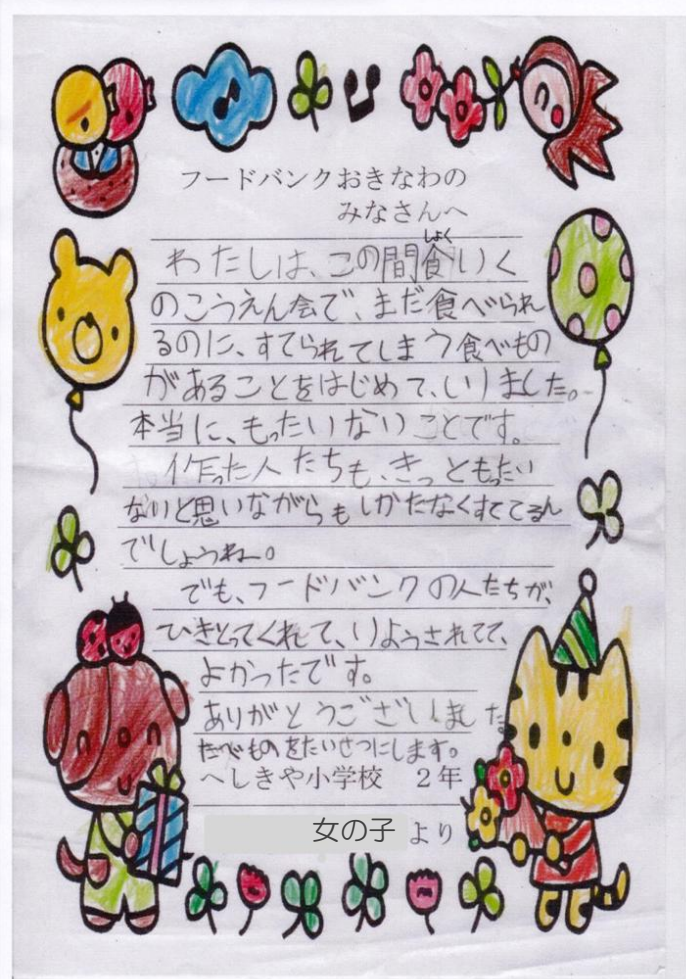 フードバンクおきなわの
みなさんへ
しょく
わたしは、この間食いく
のこうえん会で、まだ食べられ
るのに、すてられてしまう食べもの
があることをはじめて、しりました。
本当に、もったいないことです。
作った人たちも、きっともったい
ないと思いながらもしかたなくすててるん
でしょうね。
でも、フードバンクの人たちが、
ひきとってくれて、りようされてて、
よかったです。
ありがとうございました
たべものをたいせつにします。
へしきや小学校 2年
女の子 より